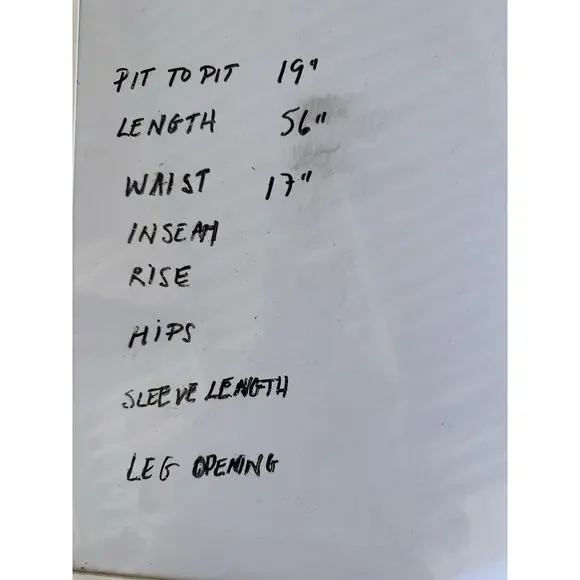 PIT TO PIT 19"
LENGTH 56"
WAIST 17"
INSEAM
RISE
HiPS
SLEEVE LENGTH
LEG OPENING